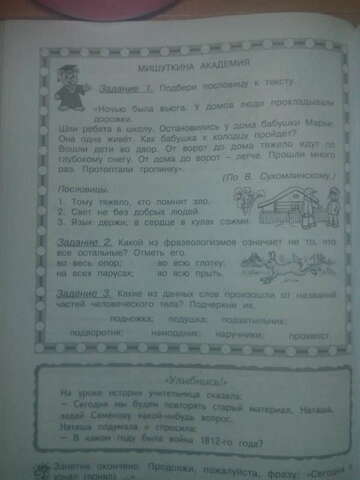 МИШУТКИНА АКАДЕМИЯ
Задание 1. Подбери пословицу к тексту.
«Ночью была вьюга. У домов люди прокладывали
дорожки.
Шли ребята в школу. Остановились у дома бабушки Марьи.
Она одна живёт. Как бабушка к колодцу пройдёт?
Вошли дети во двор. От ворот до дома тяжело идти по
глубокому снегу. От дома до ворот – легче. Прошли много
раз. Протоптали тропинку».
(По В. Сухомлинскому.)
Пословицы.
1. Тому тяжело, кто помнит зло.
2. Свет не без добрых людей.
3. Язык держи, а сердце в кулак сожми.
Задание 2. Какой из фразеологизмов означает не то, что
все остальные? Отметь его.
во весь опор; во всю глотку;
на всех парусах; во всю прыть.
Задание 3. Какие из данных слов произошли от названий
частей человеческого тела? Подчеркни их.
подножка; подушка; подзатыльник;
подворотня; намордник; наручники;
«Улыбнись!»
На уроке истории учительница сказала:
– Сегодня мы будем повторять старый материал. Наташа,
задай Семёнову какой-нибудь вопрос.
Наташа подумала и спросила:
– В каком году была война 1812-го года?
Занятие окончено. Продолжи, пожалуйста, фразу: «Сегодня я